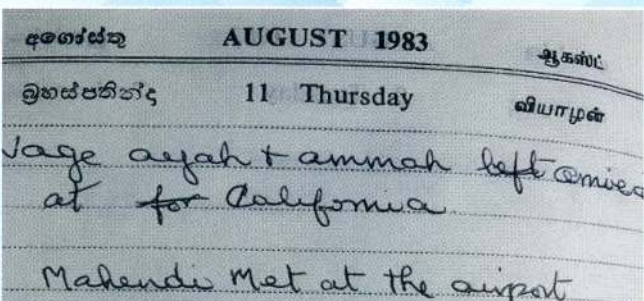 අගෝස්තු AUGUST 1983 ஆகஸ்ட்
බ්‍රහස්පතින්දා 11 Thursday வியாழன்
ayah + ammah left
at for California
Mahendi Met at the airport